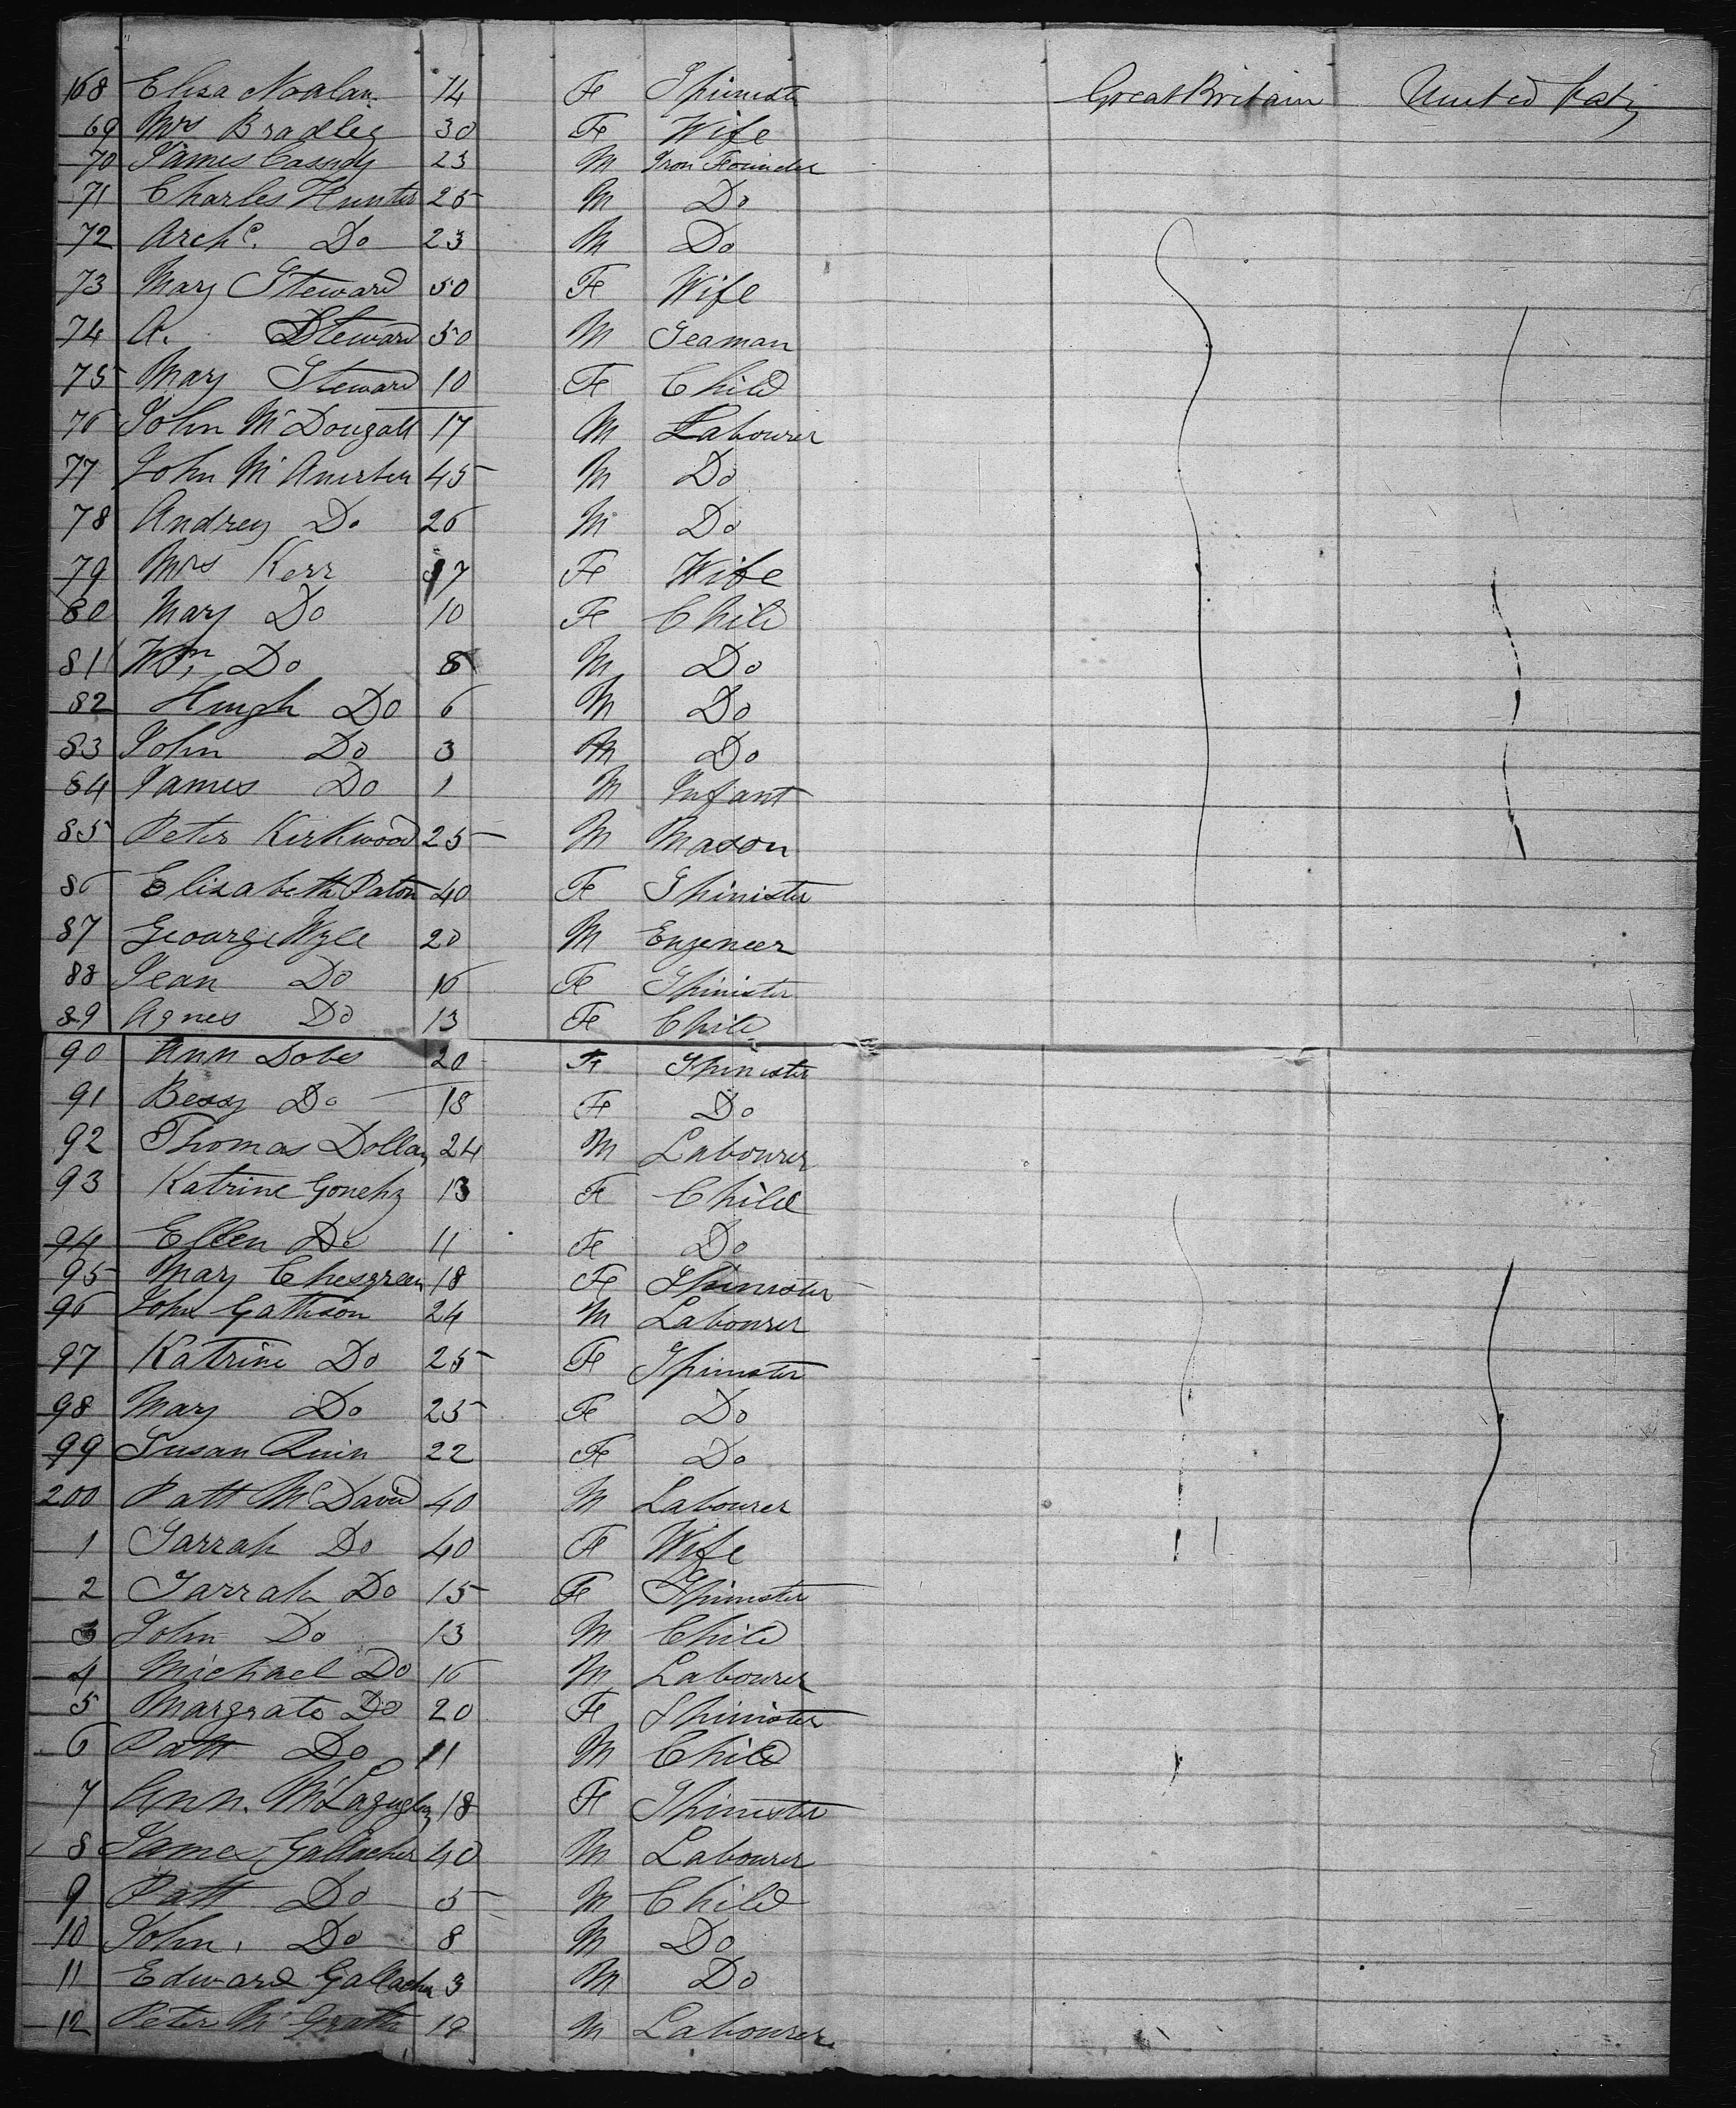 168 Elisa Noalan 14 Fe Spinster Great Britain United States
69 Mrs Bradley 30 Fe Wife
70 James Casudy 23 M Iron Founder
71 Charles Hunter 25 M Do
72 Archd. Do 23 M Do
73 Mary Steward 50 Fe Wife
74 A. Steward 50 M Seaman
75 Mary Steward 10 Fe Child
76 John McDougall 17 M Labourer
77 John Mc 45 M Do
78 Andrey Do 26 M Do
79 Mrs Kerr 37 Fe Wife
80 Mary Do 10 Fe Child
81 Wm Do 8 M Do
82 Hugh Do 6 M Do
83 John Do 3 M Do
84 James Do 1 M Infant
85 Peter Kirkwood 25 M Mason
86 Elisabeth Paton 40 Fe Spinister
87 Gearge Wyle 20 M Engeneer
88 Jean Do 16 Fe Spinister
89 Agnes Do 13 Fe Child
90 Ann Dobs 20 Fe Spinister
91 Bessy Do 18 Fe Do
92 Thomas Dollan 24 M Labourer
93 Katrine 13 Fe Child
94 Ellen Do 11 Fe Do
95 Mary Chesgreen 18 Fe Spinister
96 John Gathson 24 M Labourer
97 Katrine Do 25 Fe Spinster
98 Mary Do 25 Fe Do
99 Susan Quin 22 Fe Do
200 Patt McDavid 40 M Labourer
1 Sarrah Do 40 Fe Wife
2 Sarrah Do 15 Fe Spinster
3 John Do 13 M Child
4 Michael Do 16 M Labourer
5 Margrate Do 20 Fe Spinister
6 Patt Do 11 M Child
7 Ann. 18 Fe Spinister
8 James Gallacher 40 M Labourer
9 Patt Do 5 M Child
10 John, Do 8 M Do
11 Edward Gallacher 3 M Do
12 Peter McGrath 19 M Labourer